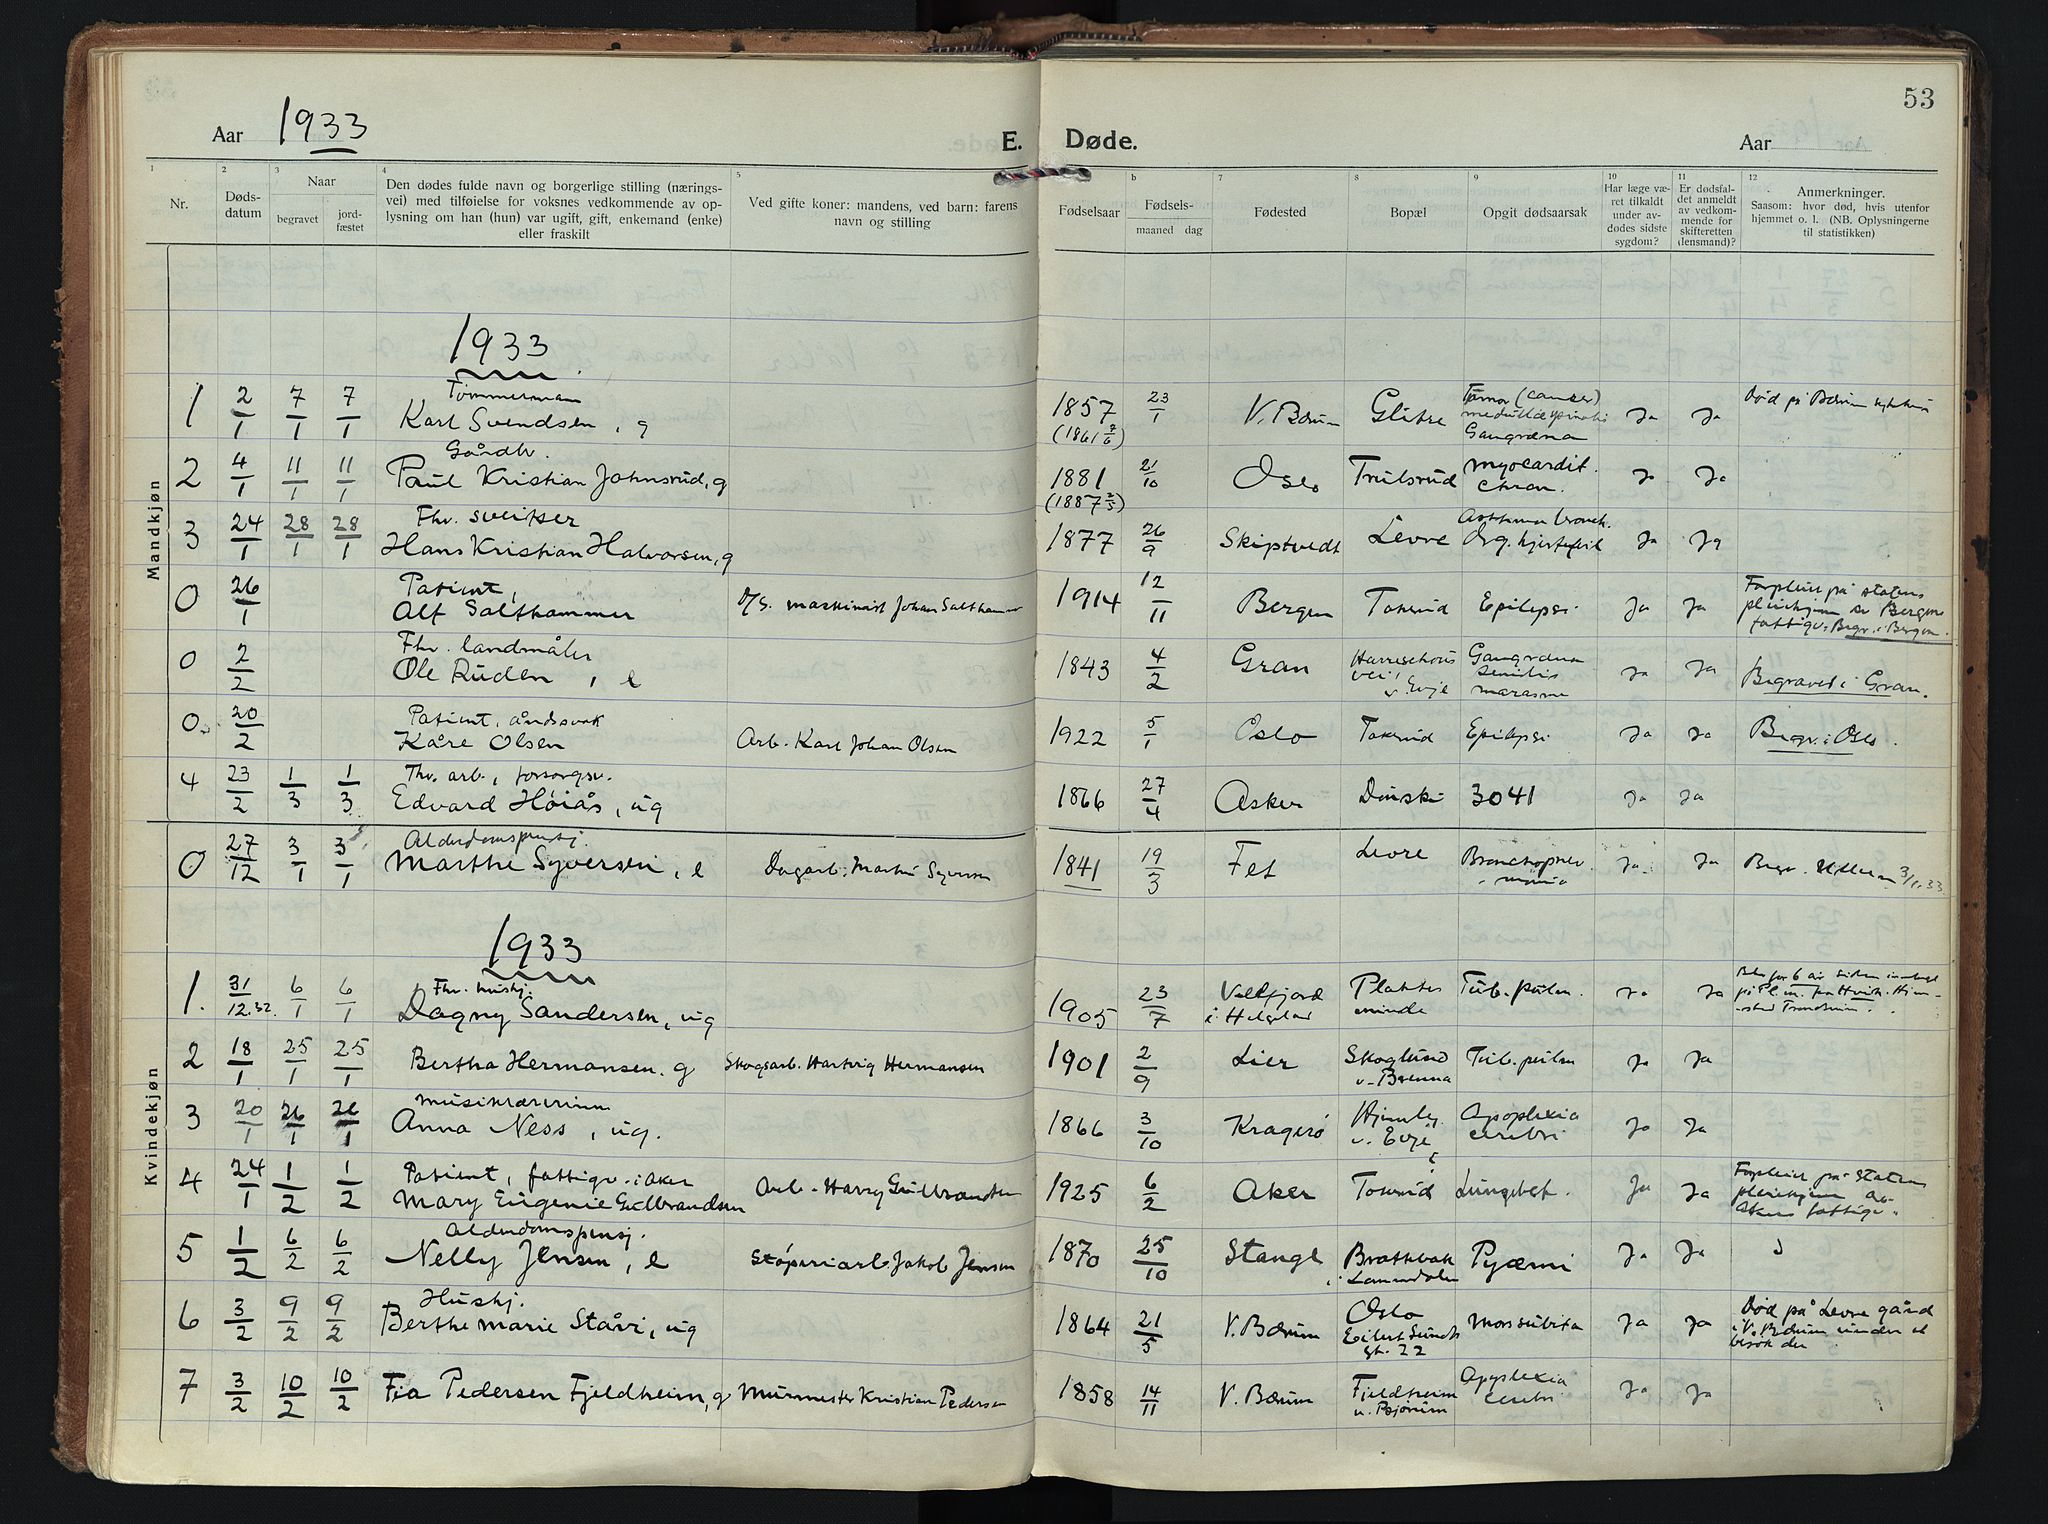 53
Aar 1933
E. Døde.
Aar
1 2 3 4 5 6 7 8 9 10 11 12
Nr.
Døds-
datum
Naar
begravet
jord-
fæstet
Den dødes fulde navn og borgerlige stilling (nærings-
vei) med tilføielse for voksnes vedkommende av op-
lysning om han (hun) var ugift, gift, enkemand (enke)
eller fraskilt
Ved gifte koner: mandens, ved barn: farens
navn og stilling
Fødselsaar
b
Fødsels-
maaned dag
Fødested
Bopæl
Opgit dødsaarsak
Har læge væ-
ret tilkaldt
under av-
dødes sidste
sygdom?
Er dødsfal-
det anmeldt
av vedkom-
mende for
skifteretten
(lensmand)?
Anmerkninger.
Saasom: hvor død, hvis utenfor
hjemmet o. l. (NB. Oplysningerne
til statistikken)
Mandkjøn
1933
1 2/1 7/1 7/1 Tømmerman
Karl Svendsen, g 1857 23/1 V. Bærum Glitre Tumor (cancer)
(1861 7/6) Gangræna Ja Ja Død på Bærum sykehus
2 4/1 11/1 11/1 Gårdbr.
Paul Kristian Johnsrud, g 1881 21/10 Oslo Trulsrud myocardit.
chron. Ja Ja
3 24/1 28/1 28/1 Fhv. sveitser (1887 2/3)
Hans Kristian Halvorsen, g 1877 26/9 Skiptvedt Levre Asthma bronch.
Org. hjertefeil Ja Ja
0 26/1 Patient,
Alf Salthammer D/S. maskinist Johan Salthammer 1914 12/11 Bergen Tokerud Epilepsi Ja Ja Forpleiet på statens
pleiehjem av Bergens
fattigv. Begr. i Bergen.
0 2/2 Fhv. landmåler
Ole Ruden, e 1843 4/2 Gran Harreschous
vei, v. Evje Gangræna
senilis
marasme Ja Ja Begravet i Gran.
0. 20/2 Patient, åndssvak
Kåre Olsen Arb. Karl Johan Olsen 1922 5/1 Oslo Tokerud Epilepsi Ja Ja Begr. i Oslo.
4 23/2 1/3 1/3 Fhv. arb., forsorgsv.
Edvard Høiås, ug 1866 27/4 Asker Dønski 3041 Ja Ja
0 27/12 3/1 3/1 Alderdomspensj.
Marthe Syversen, e Dagarb. Martin Syversen 1841 19/3 Fet Levre Bronchopneu-
monia Ja Ja Begr. 3/1.33
Kvindekjøn
1933
1. 31/12.32. 6/1 6/1 Fhv. hushj.
Dagny Sandersen, ug 1905 23/7 Velfjord
i Helgeland Plahtes
minde Tub. pulm. Ja Ja Blev for 6 år siden
2 18/1 25/1 25/1 Bertha Hermansen. g Skogsarb. Hartvig Hermansen 1901 2/9 Lier Skoglund
v. Brenna Tub. pulm Ja Ja
3 20/1 26/1 26/1 Musiklærerinne
Anna Ness, ug. 1866 3/10 Kragerø Hjemly
v. Evje Apoplexia
cerebri Ja Ja
4 24/1 1/2 1/2 Patient, fattigv. i Aker
Mary Eugenie Gulbrandsen Arb. Harry Gulbrandsen 1925 6/2 Aker Tokerud Lungebet. Ja Ja Forpleiet på statens
pleiehjem av
Akers fattigv.
5 1/2 6/2 6/2 Alderdomspensj.
Nelly Jensen, e Støperiarb Jakob Jensen 1870 25/10 Stange Brattbak
i Lommedalen Pyæmi Ja Ja
6 3/2 9/2 9/2 Hushj.
Berthe Marie Ståvi, ug 1864 21/5 V. Bærum Oslo
Eilert Sundts
gt. 22 Mors subita Ja Ja Død på Levre gård
i V. Bærum under et
besøk der
7 3/2 10/2 10/2 Fia Pedersen Fjeldheim, g Murmester Kristian Pedersen 1858 14/11 V. Bærum Fjeldheim
v. Bjørum Apoplexia
cerebri Ja Ja